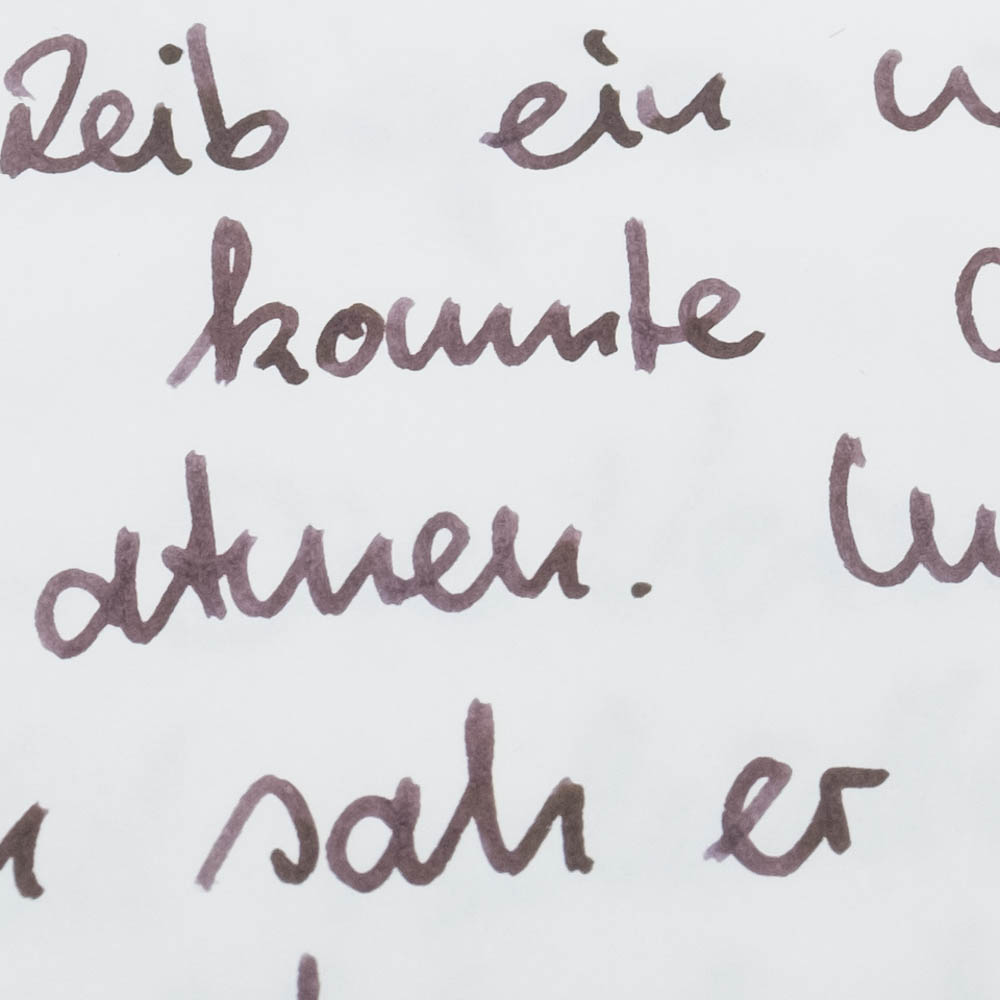 Leib ein
konnte
atmen.
sah er